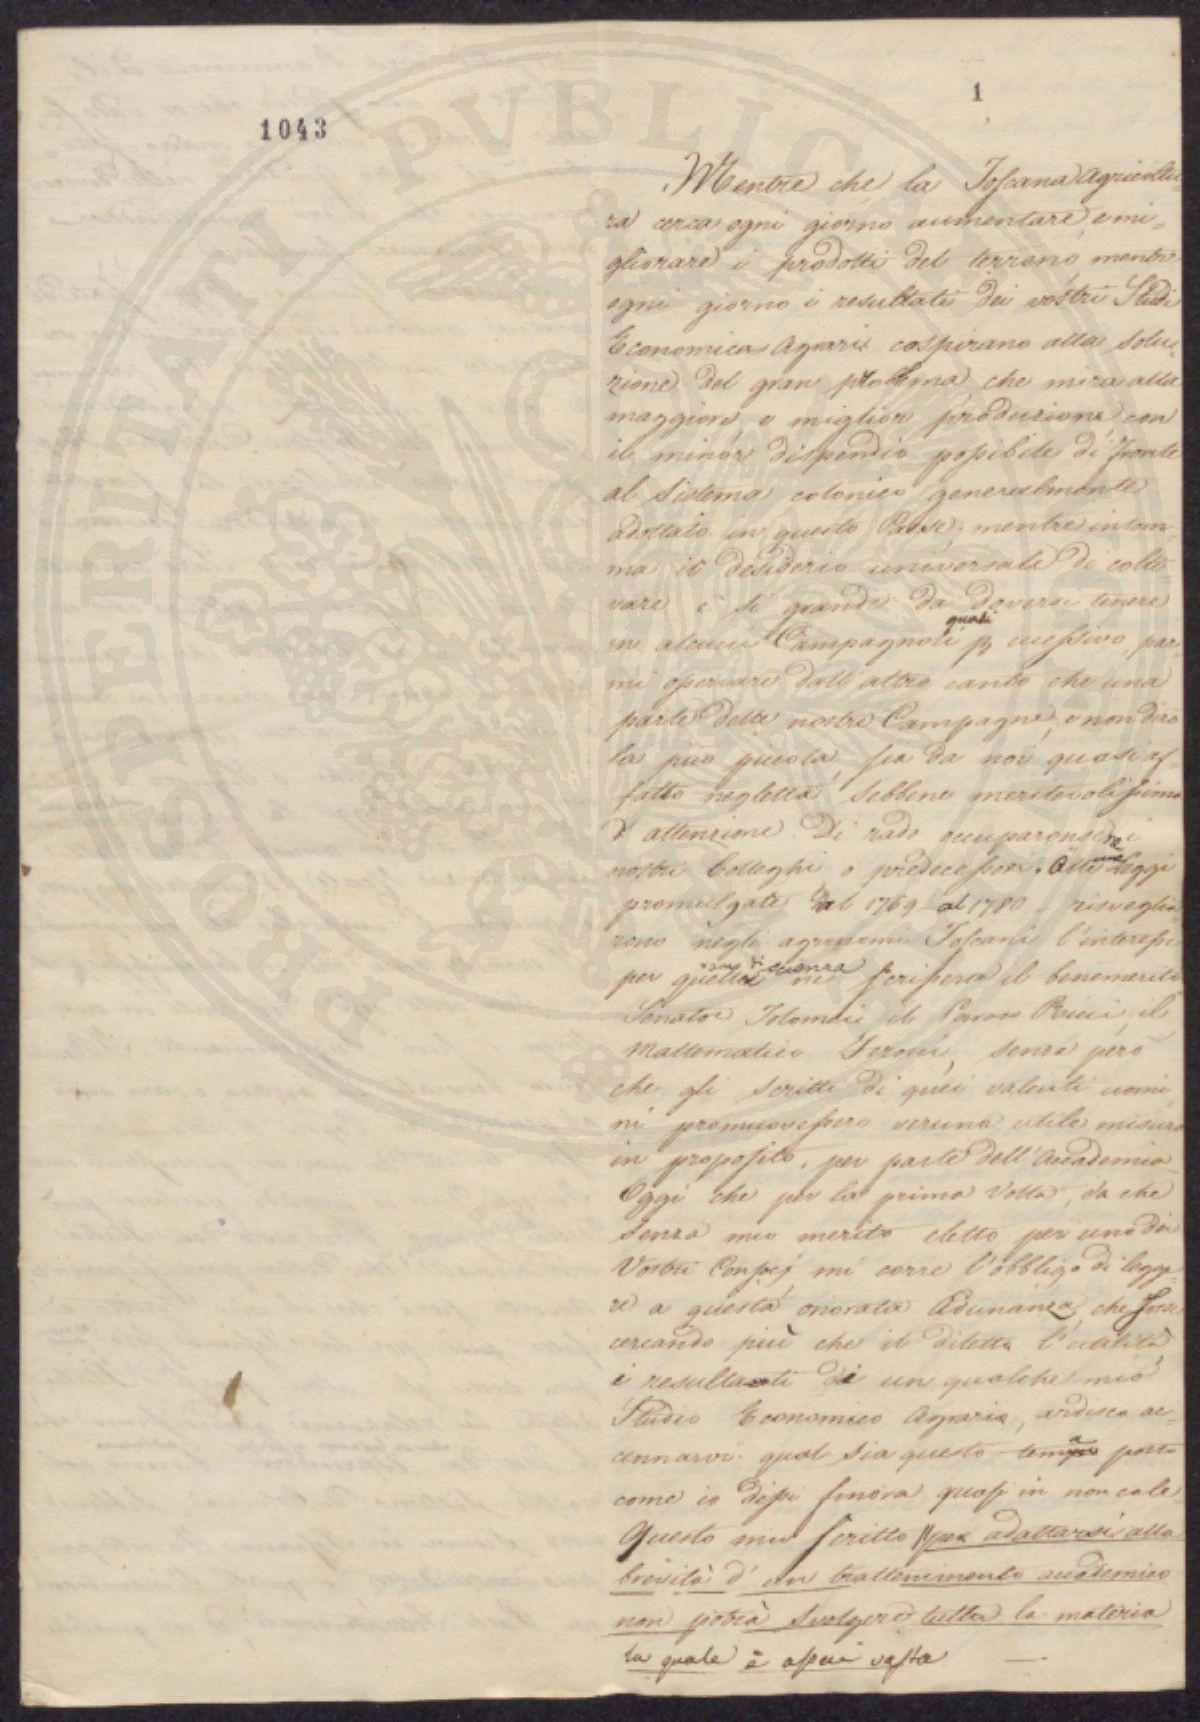 1
1043
PROSPERITATI PUBLICAE
Mentre che la Toscana Agricoltu-
ra cerca ogni giorno aumentare, e mi-
gliorare i prodotti del terreno, mentre
ogni giorno i resultati dei vostri Studi
Economico Agrari cospirano alla solu-
zione del gran problema, che mira alla
maggiore e miglior produzione con
il minor dispendio possibile di fronte
al sistema colonico generalmente
adottato in questo Paese; mentre insom-
ma il desiderio universale di colti-
vare è sì grande da doversi tenere
quasi
in alcuni Campagnoli p eccessivo, par-
mi osservare dall'altro canto che una
parte delle nostre Campagne, e non dirò
la più piccola, sia da noi quasi af-
fatto negletta, sebbene meritevolissima
d'attenzione. Di rado occuparonsene i
nostri Colleghi o predecessori. Alle Leggi
promulgate dal 1769 al 1780 risveglia
rono negli agronomi Toscani l'interesse
ramo di scienza
per quella ne scrissero il benemerito
Senator Tolomei il Ricci, il
Mattematico Ferroni, senza però
che gli scritti di quei valenti uomi-
ni promuovessero veruna utile misura
in proposito, per parte dell'Accademia
Oggi che per la prima volta, da che
senza mio merito eletto per uno dei
Vostri Consocj mi corre l'obbligo di legge-
re a questa onorata Adunanza, che forse
cercando più che il diletto l'utilità,
i resultati di un qualche mio
Studio Economico Agrario, ardisco ac-
cennarvi qual sia questo tema posto
come io dissi finora quasi in non cale
Questo mio scritto per adattarsi alla
brevità d'un trattenimento accademico
non potrà svolgere tutta la materia
la quale è assai vasta